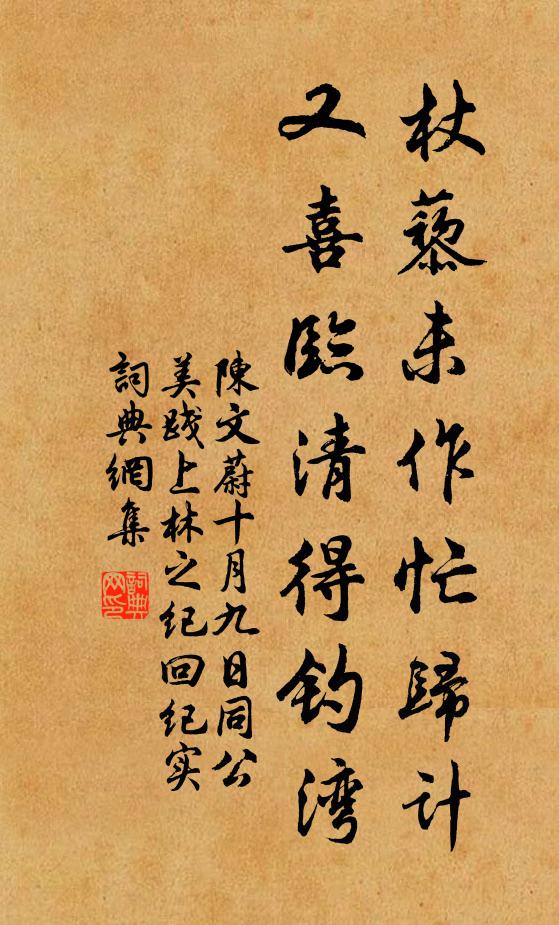 杖藜未作忙歸计
又喜臨清得钓湾
陳文蔚十月九日同公
美践上林之纪回纪实
詞典網集
詞典網印